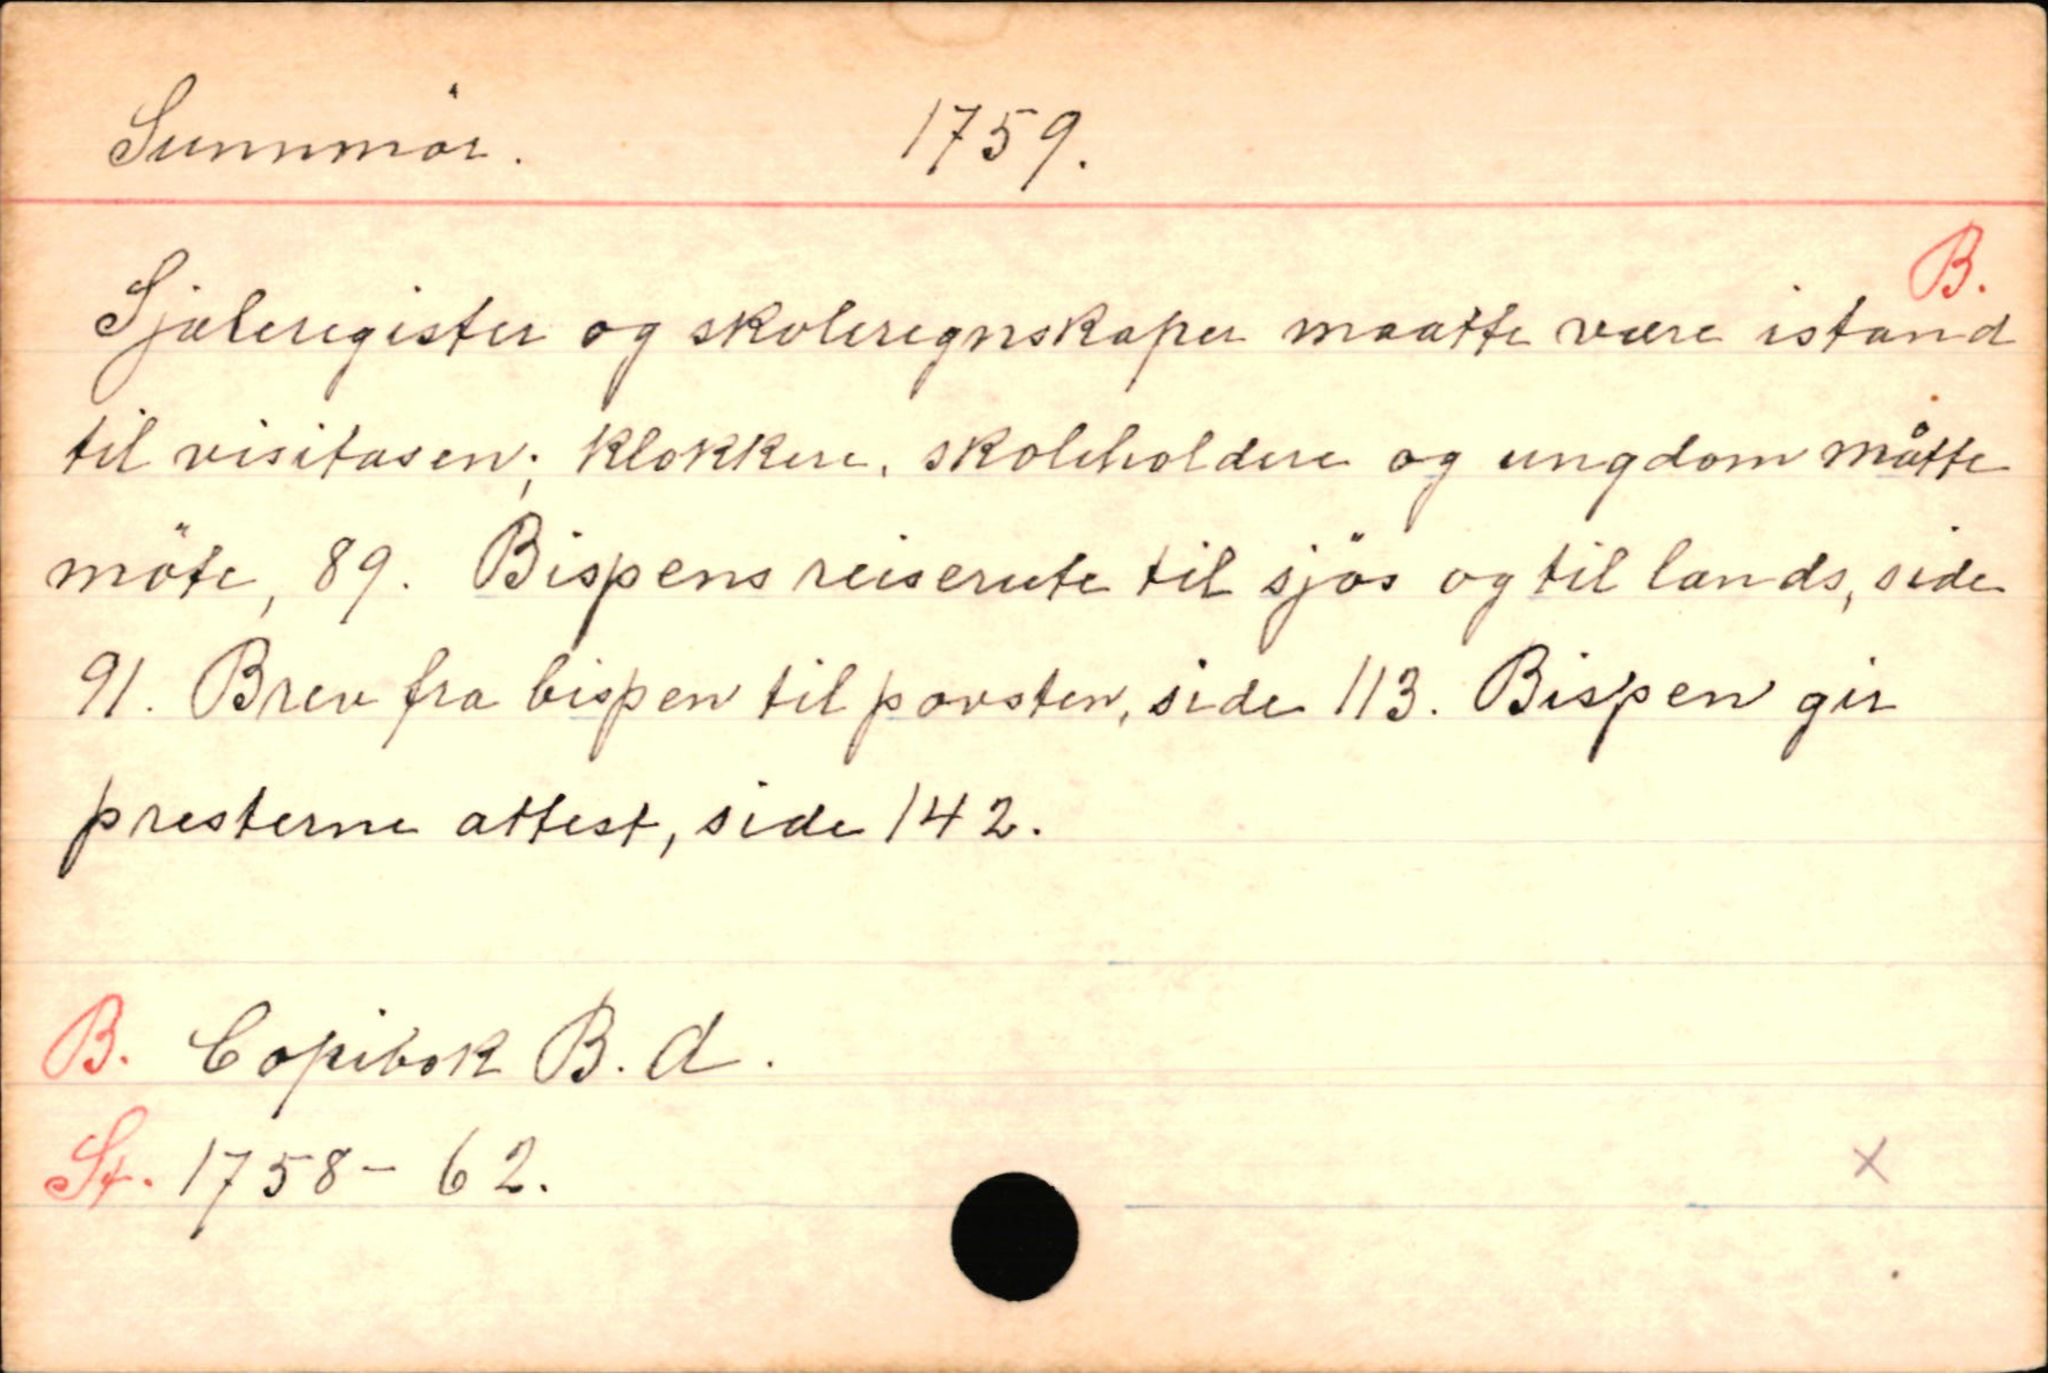 Sunnmör. 1759.
B.
Sjæleregister og skoleregnskaper maatte være istand
til visitasen; klokkere, skoleholdere og ungdom måtte
möte, 89. Bispens reiserute til sjös og til lands, side
91. Brev fra bispen til povsten, side 113. Bispen gir
presterne attest, side 142.
B. Copibok B. d.
St. 1758-62.
x